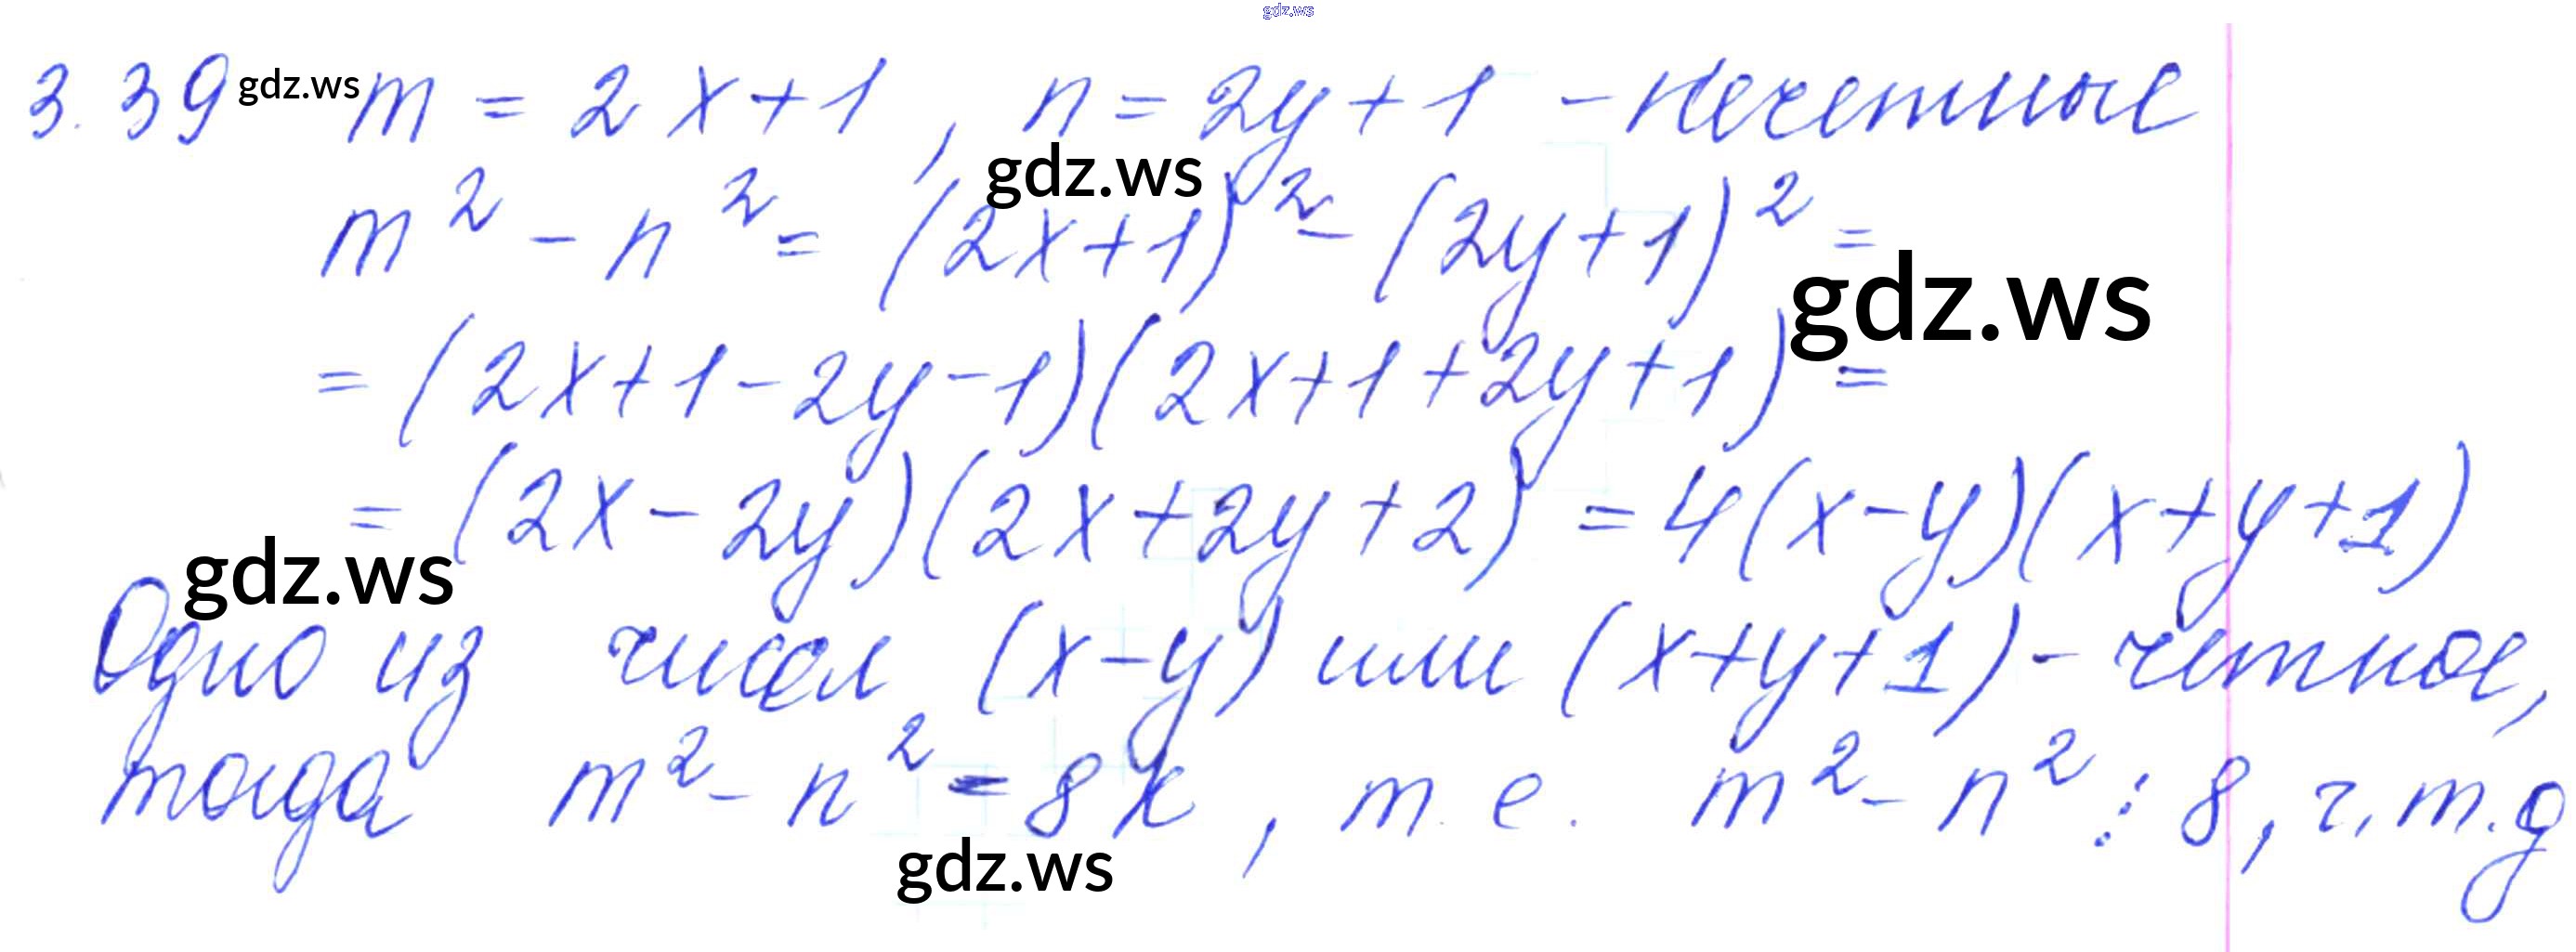 gdz.ws
3.39 gdz.ws m = 2x+1, n = 2y+1 - нечетные
gdz.ws
m² - n² = (2x+1)² - (2y+1)² =
gdz.ws
= (2x+1-2y-1)(2x+1+2y+1) =
= (2x-2y)(2x+2y+2) = 4(x-y)(x+y+1)
gdz.ws
Одно из чисел (x-y) или (x+y+1) - четное,
тогда m² - n² = 8k, т.е. m² - n² ⋮ 8, ч.т.д
gdz.ws